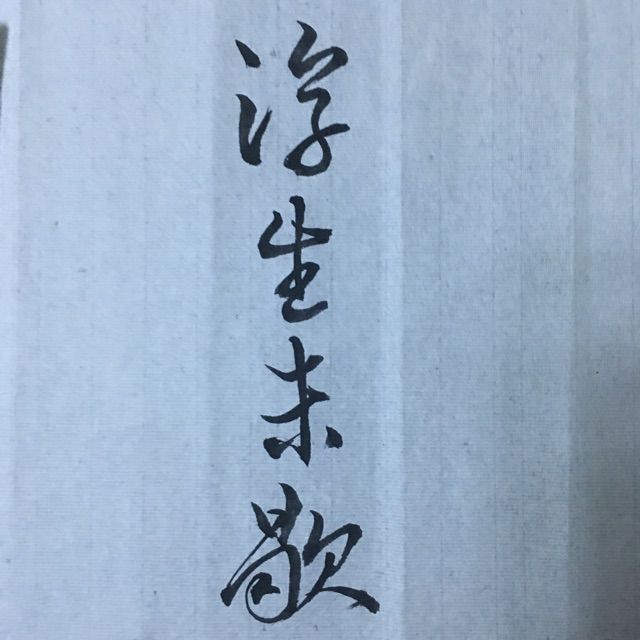 浮生未歇